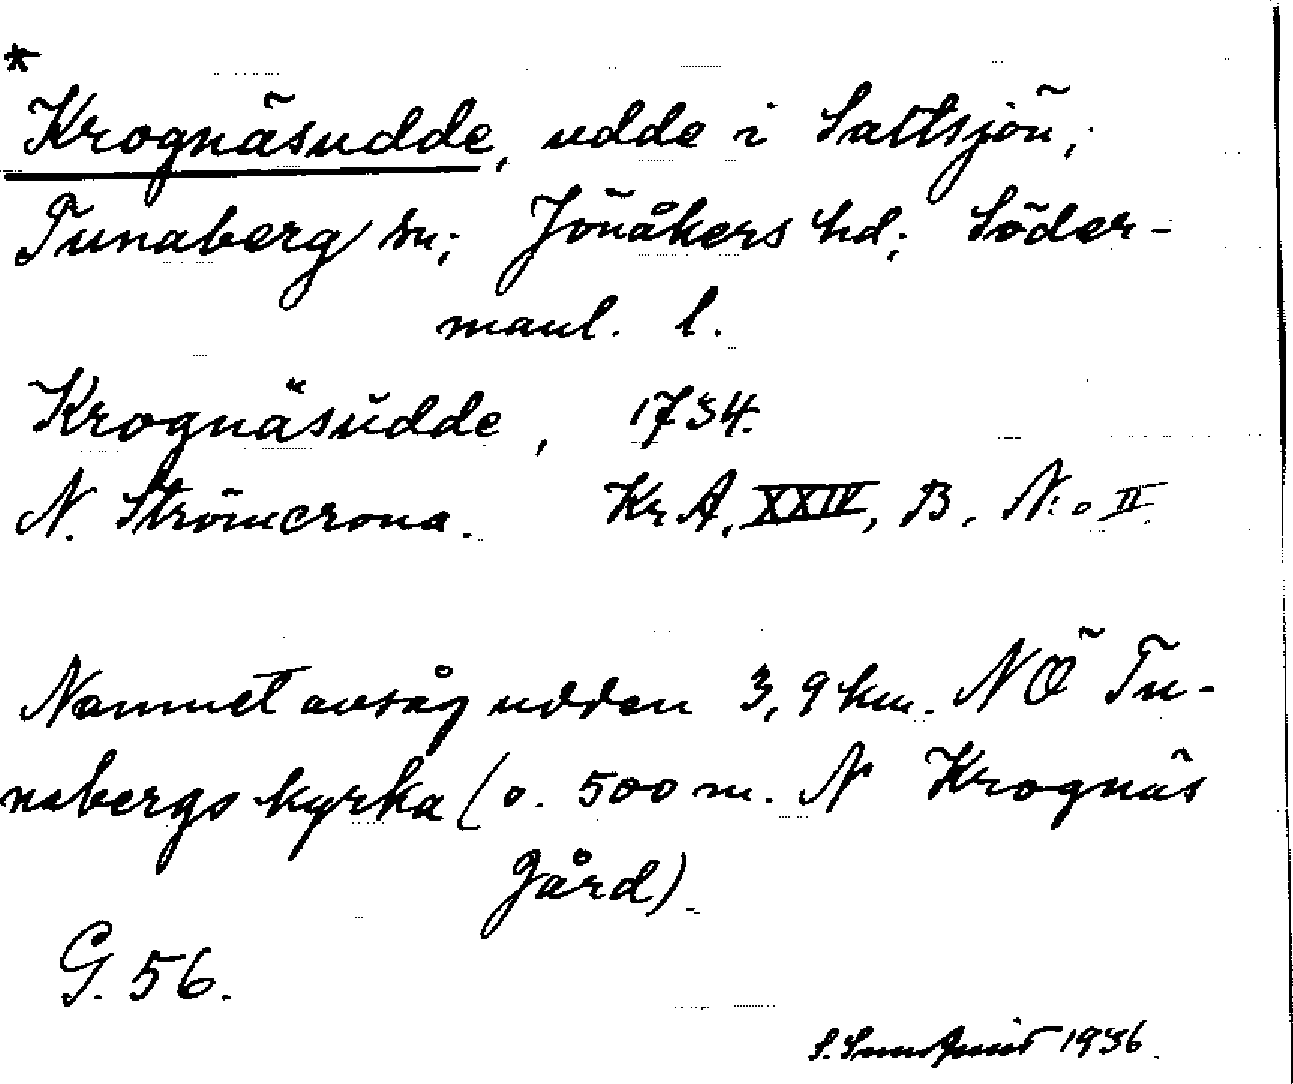 *
Krognäsudde, udde i Saltsjön,
Tunaberg sn; Jönåkers hd; Söder-
manl. l.
Krognäsudde, 1734.
N. Strömcrona. Kr A. XXIV, B. N:o II.
Namnet avsåg udden 3,9 km. NÖ Tu-
nabergs kyrka (o. 500 m. N Krognäs
gård).
G. 56.
S. 1936.